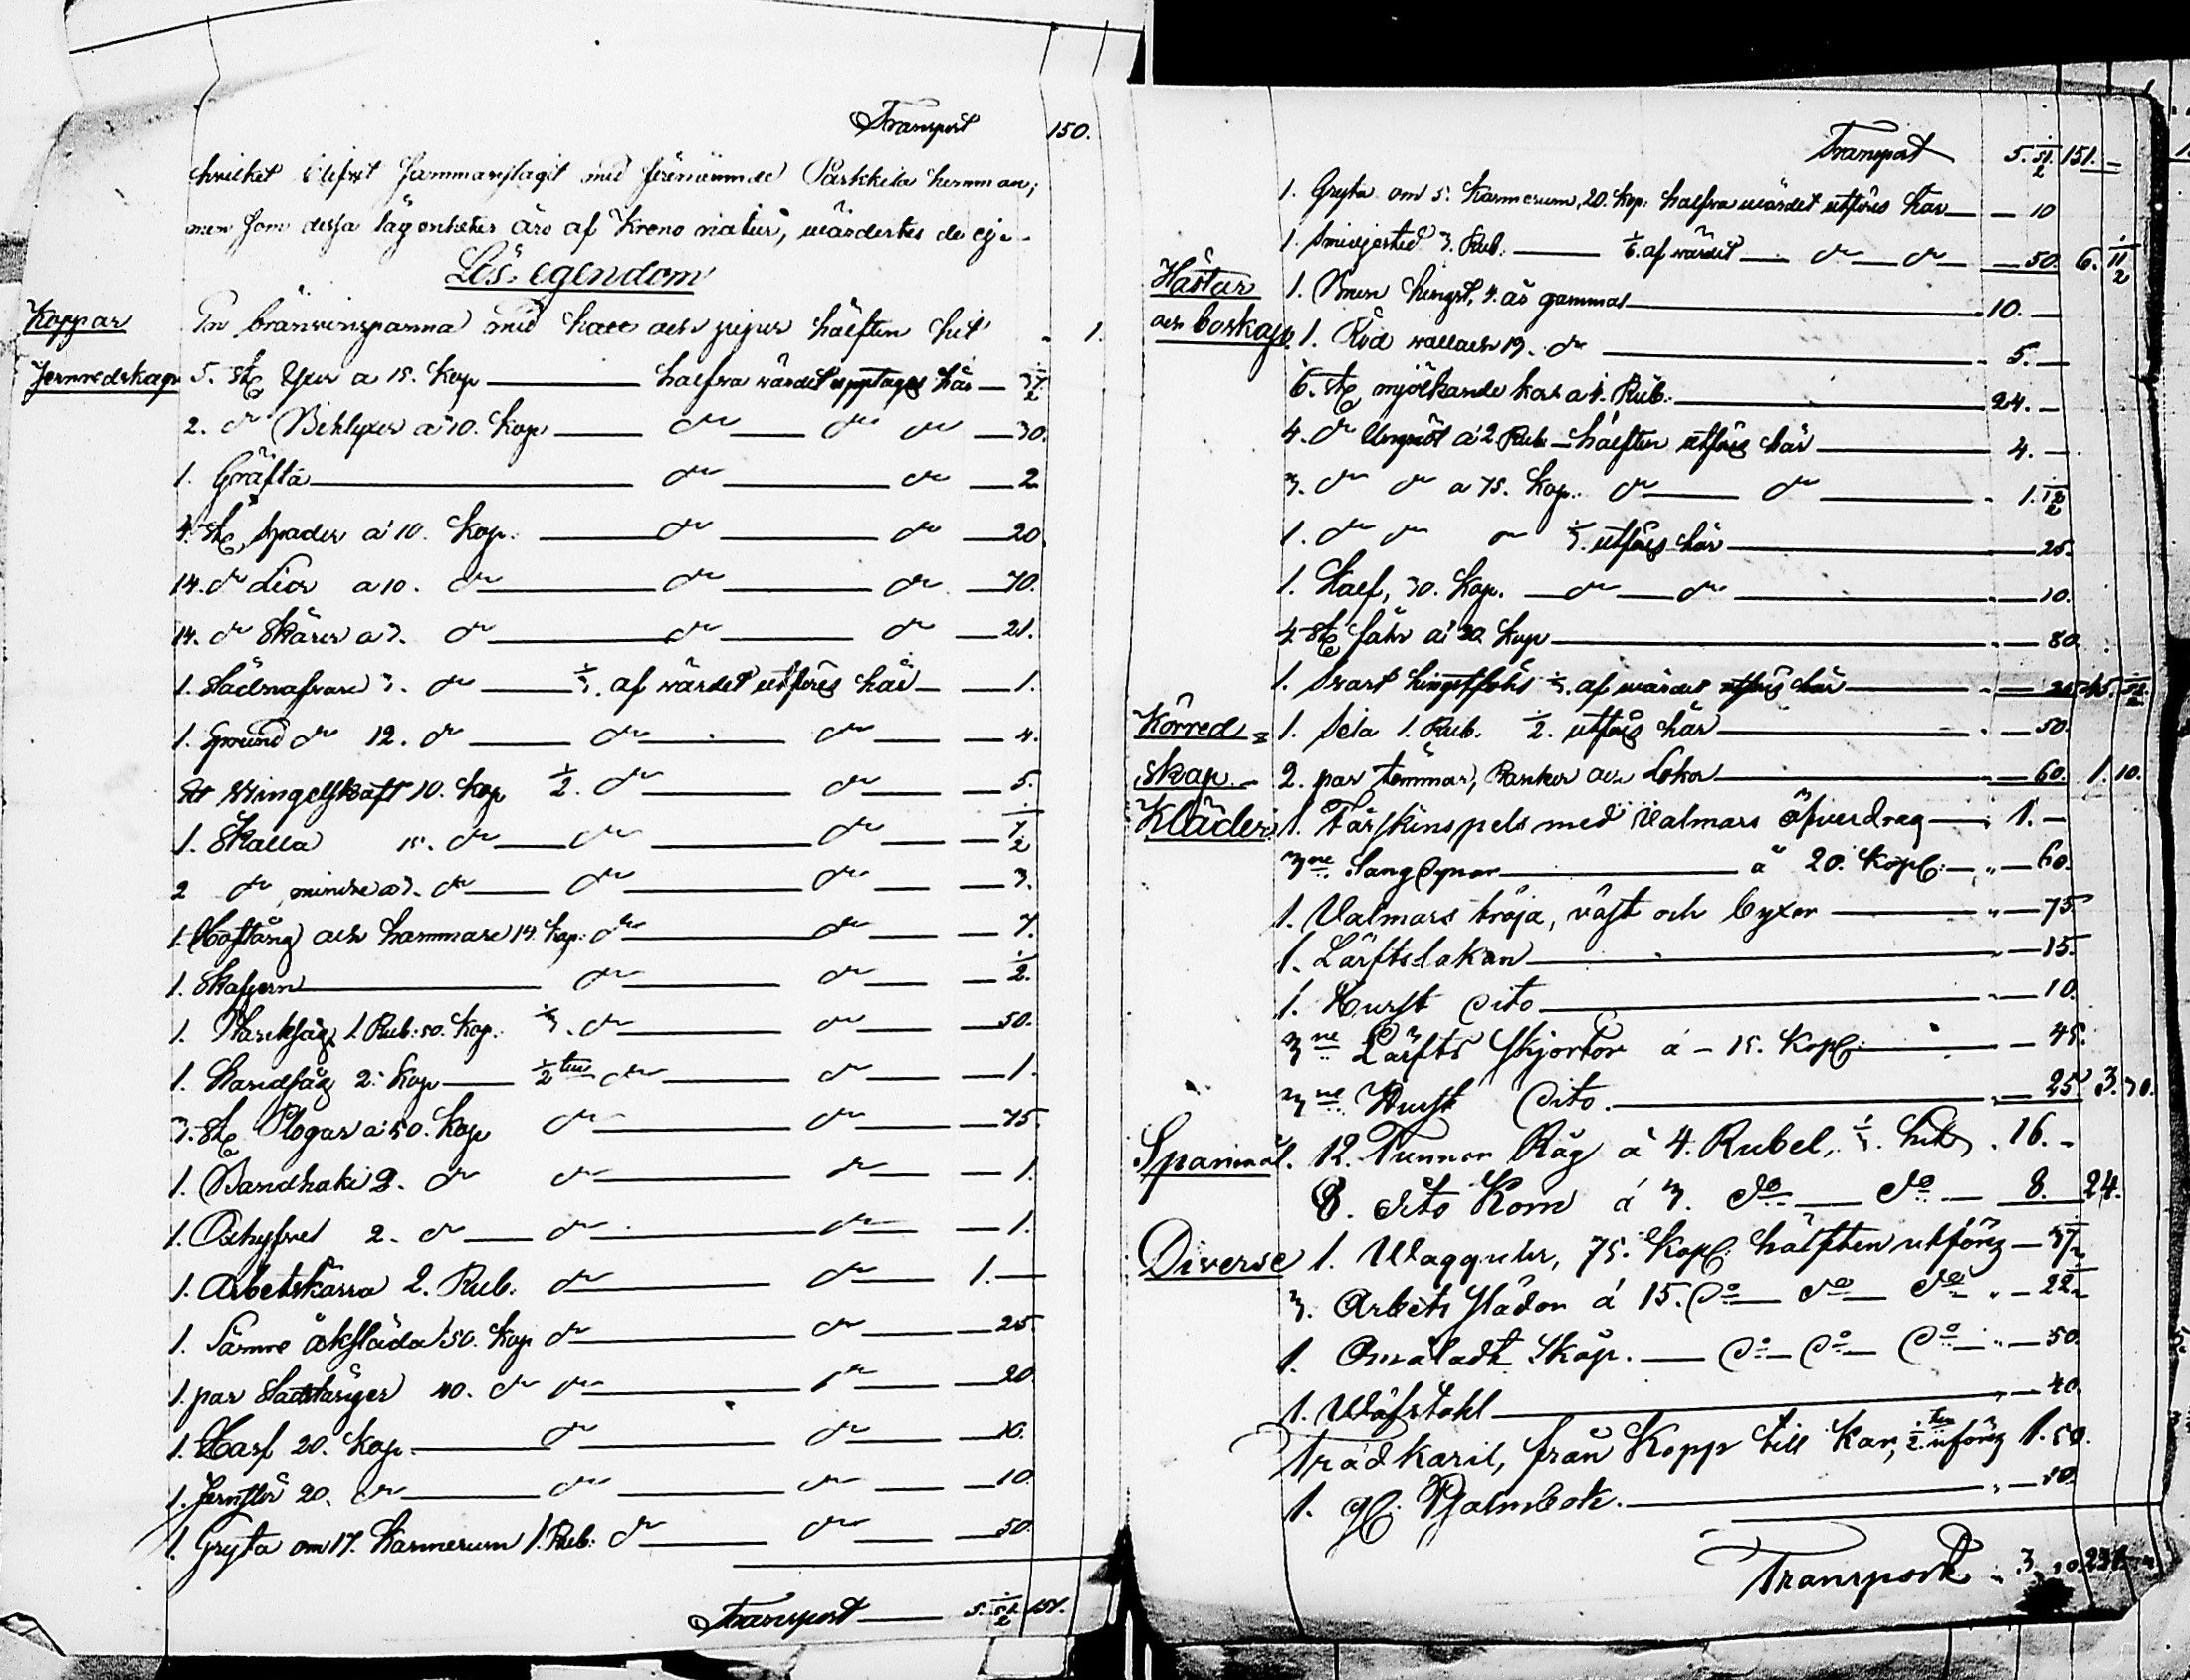 Transport 150.
hvilket blifvit sammanslagit med förenämnde Parkkila hemman,
men som dessa lägenheter äro af Krono natur, värdertes de ej.
Lös-egendom
Koppar En bränvinspanna med hatt och pipor hälften hit " 1.
Jernredskap 5. st Yxor a 15. Kop halfva värdet upptages här 37 1/2
2. do Bihlyxor a 30. Kop do do do 30.
1. Gräfta do do 2
4. st, Spador a 10. Kop. do do 20.
14. do Liar a 10. do do do 70.
14. do Skäror a 3. do do do 21.
1. Nafvare 3. do 1/3. af värdet utföres här 1.
1. do 12. do do do 4.
Ett 10. Kop 1/2. do do 5.
1. Skalla 15. do do do 7 1/2
2 do mindre a 3. do do do 3.
1. Hoftång och hammare 14. Kop: do do 7.
1. Skafjern do do 1/2.
1. 1. Rub: 50. Kop. 1/3. do do 50.
1. Handsåg 2. Kop 1/2 ten do do 1.
3. st Plogar a 50. Kop do do 75.
1. Bandhake 2. do do do 1.
1. 2. do do do 1.
1. Arbetskärra 2. Rub. do do 1.
1. Sämre åksläda 50. Kop do do 25.
1. par 40. do do do 20
1. Harf 20. Kop. do do 10.
1. Jernstör 20. do do do 10
1. Gryta om 17. Kannerum 1. Rub: do do 50.
Transport 5. 51 1/2 151.
Transport 5. 51 1/2 151.
1. Gryta om 5. Kannerum, 20. Kop: halfva värdet utföres här 10
1. Smidjestäd 3. Rub. 1/6. af värdet do do 50. 6. 11 1/2
Hästar 1. Brun hingst, 4. år gammal 10.
och boskap. 1. Röd vallach 13. do 5.
6. st mjölkande kor a 4. Rub. 24.
4. do Ungnöt a 2. Rub hälften utföres här 4.
3. do do a 75. Kop. do do 1. 12 1/2
1. do do do 1/3. utföres här 25.
1. Kalf, 30. Kop. do do 10.
4. st fåhr a 20. Kop 80.
1. Svart hingstföhl 1/3. af värdet utföres här 25 45. 52 1/2
Körred= 1. Sela 1. Rub. 1/2. utföres här 50.
skap. 2. par tömmar, Rankor och Lokor 60. 1. 10.
Kläder. 1. Fårskinspels med Valmars öfverdrag 1.
3ne Sängdynor a 20. Kop: 60.
1. Valmars tröja, väst och byxor 75
1. Lärftslakan 15.
1. Hurst dito 10.
3ne Lärfts skjortor á 15. Kop: 45.
3ne Hurst dito. 25 3. 30.
Spanmål. 12. Tunnor Råg á 4. Rubel, 1/3. hit 16.
8. dito Korn á 3. do do 8. 24.
Diverse 1. Wägguhr, 75. Kop: hälften utförs 37 1/2
3. Arbets slädor á 15. do do do 22 1/2
1. Omåladt Skåp. do do do 50.
1. Wäfstohl 40.
Trädkäril, från Kopp till Kar, 1/2 ten utförs 1. 50.
1. gl. Psalmbok. 10.
Transport 3.